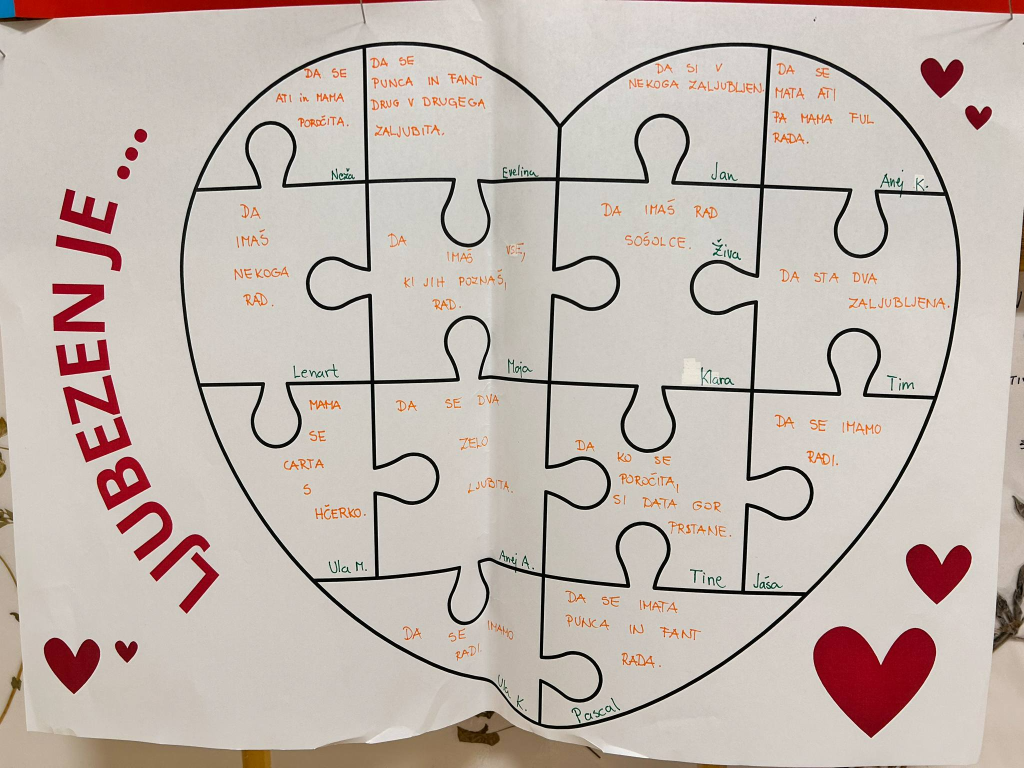 LJUBEZEN JE ...
DA SE
ATI in MAMA
POROČITA.
Neža
DA SE
PUNCA IN FANT
DRUG V DRUGEGA
ZALJUBITA.
Evelina
DA SI V
NEKOGA ZALJUBLJEN.
Jan
DA SE
MATA ATI
PA MAMA FUL
RADA.
Anej K.
DA
IMAŠ
NEKOGA
RAD.
Lenart
DA
IMAŠ VSE,
KI JIH POZNAŠ,
RAD.
Moja
DA IMAŠ RAD
SOŠOLCE.
Živa
Klara
DA STA DVA
ZALJUBLJENA.
Tim
MAMA
SE
CARTA
S
HČERKO.
Ula M.
DA SE DVA
ZELO
LJUBITA.
Anej A.
DA KO SE
POROČITA,
SI DATA GOR
PRSTANE.
Tine
DA SE IMAMO
RADI.
Jaša
DA SE IMAMO
RADI.
Ula K.
DA SE IMATA
PUNCA IN FANT
RADA.
Pascal